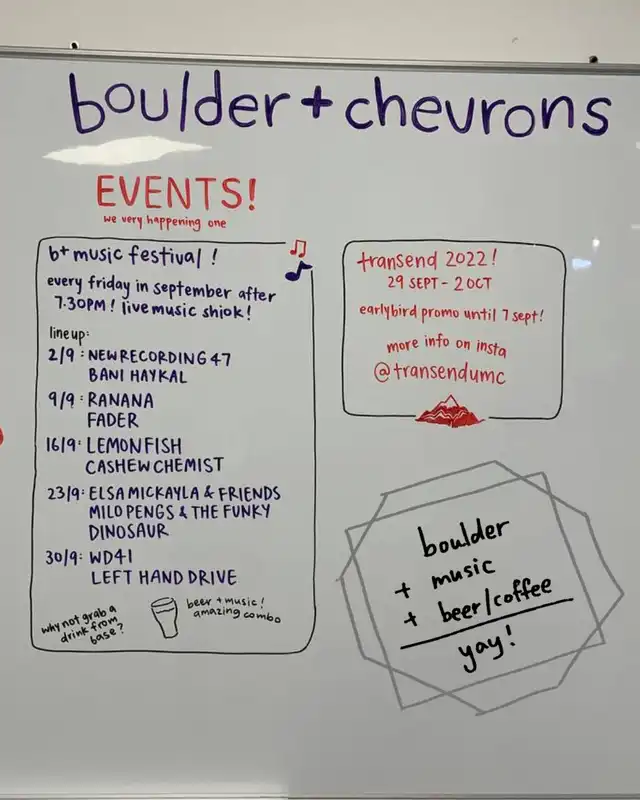 boulder + chevrons
EVENTS!
we very happening one
b+ music festival !
every friday in september after
7.30PM! live music shiok!
lineup:
2/9 : NEW RECORDING 47
BANI HAYKAL
9/9 : RANANA
FADER
16/9 : LEMONFISH
CASHEW CHEMIST
23/9 : ELSA MICKAYLA & FRIENDS
MILO PENGS & THE FUNKY
DINOSAUR
30/9 : WD41
LEFT HAND DRIVE
why not grab a
drink from
base?
beer + music!
amazing combo
transend 2022!
29 SEPT - 2 OCT
earlybird promo until 7 sept!
more info on insta
@transendumc
boulder
+ music
+ beer/coffee
yay!